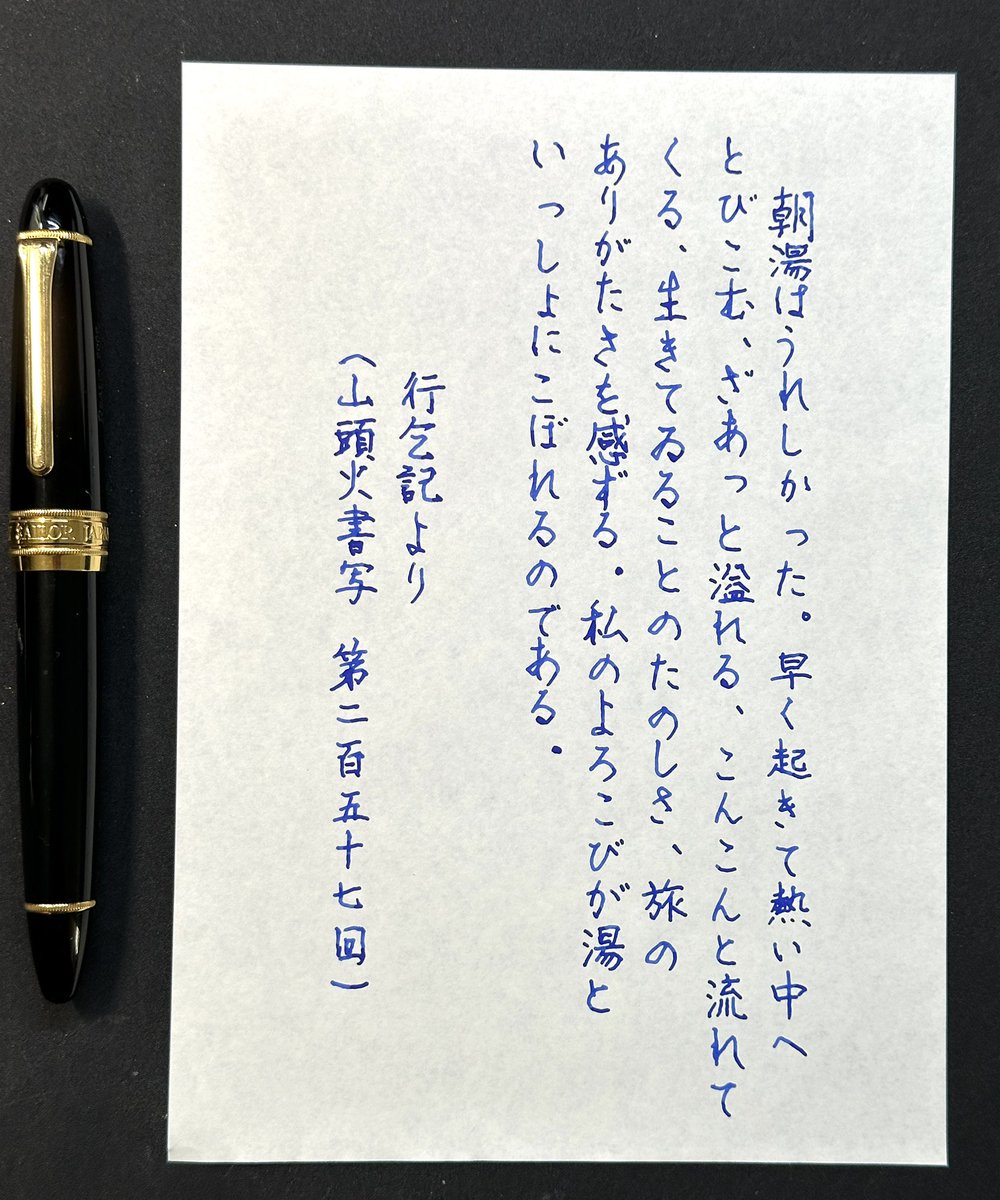 朝湯はうれしかった。早く起きて熱い中へ
とびこむ、ざあっと溢れる、こんこんと流れて
くる、生きてゐることのたのしさ、旅の
ありがたさを感ずる。私のよろこびが湯と
いっしょにこぼれるのである。
行乞記より
（山頭火書写　第二百五十七回）
SAILOR